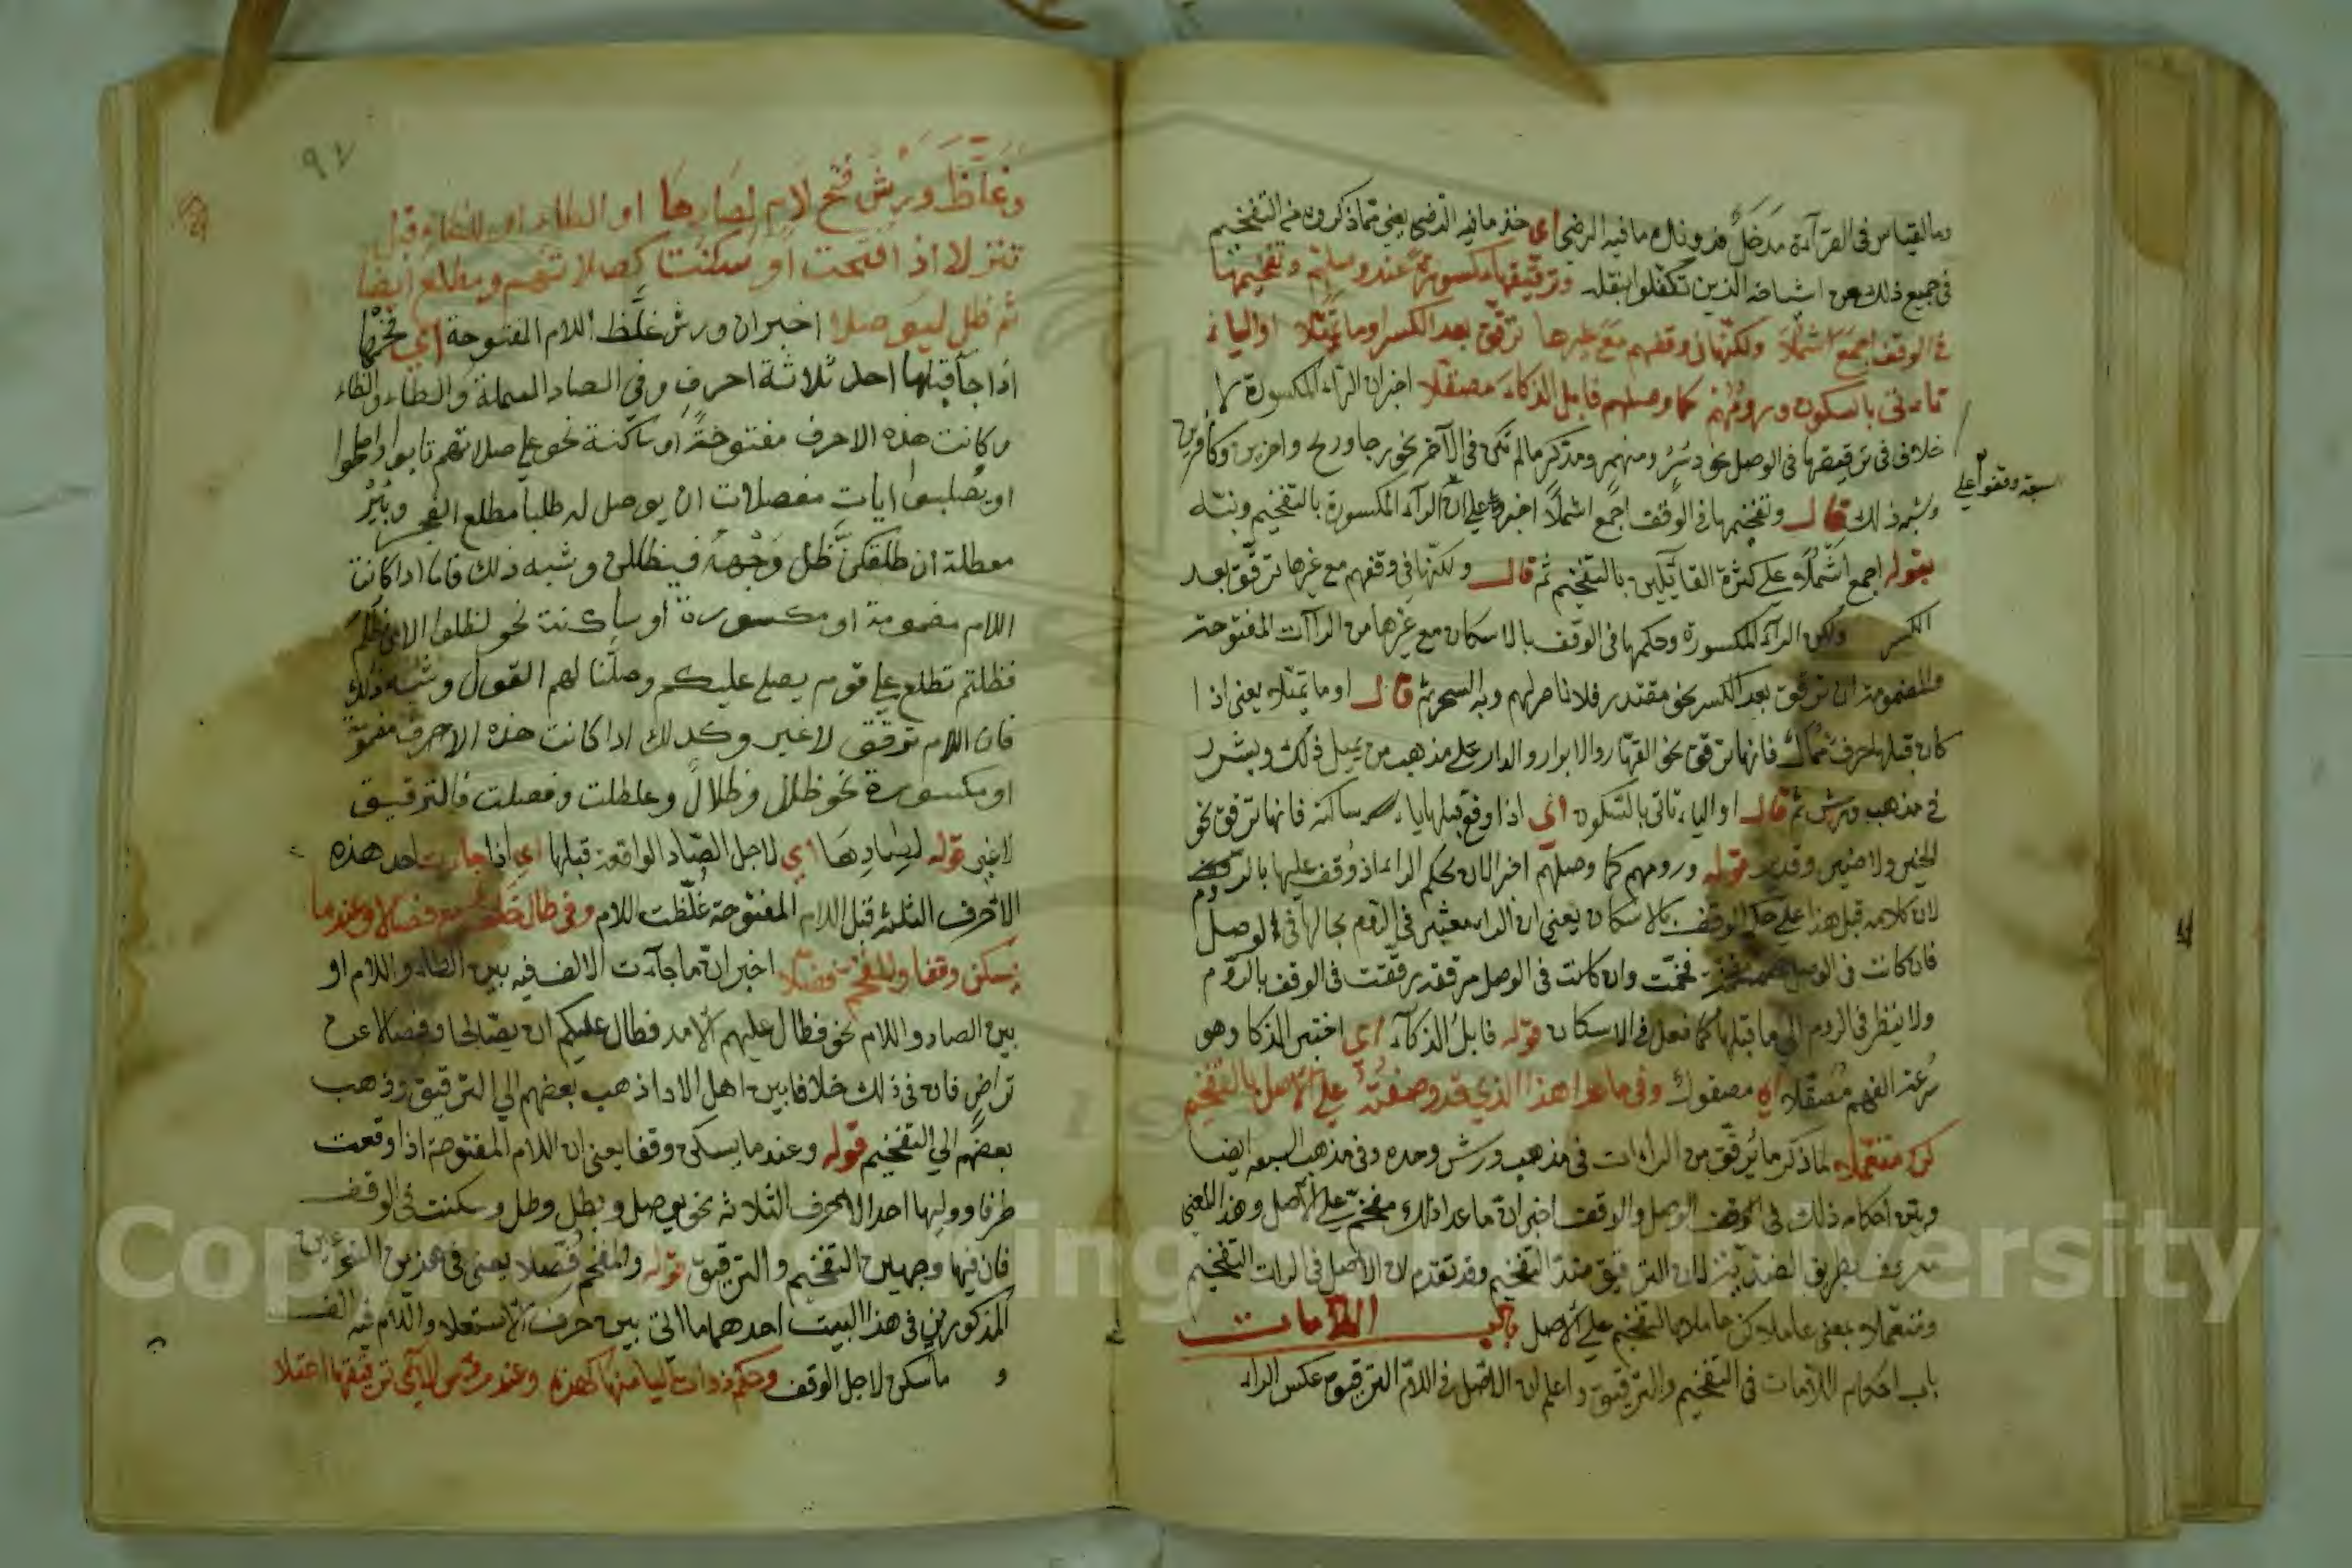 وما لقياس في القرآءة مدخل فدونك ما فيه الرضى اي خذ ما فيه الرضى يعني مما ذكروه من التفخيم
في جميع ذلك عن اشياخه الذين تكفلوا بنقله وترقيقها مكسورة عند وصلهم وتفخيمها
في الوقف اجمع اشملا ولكنها في وقفهم مع غيرها ترقق بعد الكسر او ما تميلا او الياء
تاتي بالسكون ورومهم كما وصلهم فابل الذكاء مصقلا اخبر ان الراء المكسورة لا
خلاف في ترقيقها في الوصل نحو دسر ومنهمر ومذكر ما لم تكن في الآخر نحو رجا وريح واخرين وكافرين
وشبه ذلك قال وتفخيمها في الوقف اجمع اشملا اخبر على ان الراء المكسورة بالتفخيم ونبه
السبعة وقفوا على
بقوله اجمع اشملا على كثرة القائلين بالتفخيم ثم قال ولكنها في وقفهم مع غيرها ترقق بعد
الكسر ولكن الراء المكسورة وحكمها في الوقف بالاسكان مع غيرها من الراآت المفتوحة
والمضمومة ان ترقق بعد الكسر نحو مقتدر فلا ناصر لهم وبه السحر ثم قال او ما تميلا يعني اذا
كان قبلها حرف ممال فانها ترقق نحو القهار والابرار والدار على مذهب من يميل ذلك وبشرر
في مذهب ورش ثم قال او الياء تاتي بالسكون اي اذا وقع قبلها ياء ساكنة فانها ترقق نحو
الخير ولا ضير وقدير قوله ورومهم كما وصلهم اخبر الان بحكم الراء اذا وقف عليها بالروم
لان كلامه قبل هذا على حكم الوقف بالاسكان يعني ان الراء معتبر في الروم بحالها في الوصل
فان كانت في الوصل مفخمة فخمت وان كانت في الوصل مرققة رققت في الوقف بالروم
ولا ينظر في الروم الى ما قبلها كما فعل في الاسكان قوله فابل الذكاء اي اختبر الذكا وهو
سرعة الفهم مصقلا اي مصقولا وفي ما عدا هذا الذي قد وصفته على الاصل بالتفخيم
كن متعملا لما ذكر ما يرقق من الراءات في مذهب ورش وحده وفي مذهب السبعة ايضا
وبين احكام ذلك في الوصل والوقف اخبر ان ما عدا ذلك مفخم على الاصل وهذا المعنى
معروف بطريق الضد لان الترقيق ضد التفخيم وقد تقدم ان الاصل في الراات التفخيم
ومتعملا بمعنى عاملا كن عاملا بالتفخيم على الاصل باب اللامات
باب احكام اللامات في التفخيم والترقيق واعلم ان الاصل في اللام الترقيق عكس الراء
٩٧
وغلظ ورش فتح لام لصادها او الطاء او للظاء قبل
تنزلا اذا فتحت او سكنت كصلاتهم ومطلع ايضا
ثم ظل ليوصلا اخبر ان ورش غلظ اللام المفتوحة اي فخمها
اذا جآ قبلها احد ثلاثة احرف وهي الصاد المهملة والطاء والظاء
وكانت هذه الاحرف مفتوحة او ساكنة نحو على صلاتهم تابوا واصلحوا
او يصلبوا ايات مفصلات ان يوصل له طلبا مطلع الفجر وبئر
معطلة ان طلقكن ظل وجهه فيظللن وشبه ذلك فاما اذا كانت
اللام مضمومة او مكسورة او ساكنة نحو لظلوا الا من ظلم
فظلتم تطلع على قوم يصلي عليكم وصلنا لهم القول وشبه ذلك
فان اللام ترقق لا غير وكذلك اذا كانت هذه الاحرف مضمومة
او مكسورة نحو ظلل وظلال وعطلت وفصلت فالترقيق
لا غير قوله لصادها اي لاجل الصاد الواقعة قبلها اي اذا جاءت احد هذه
الاحرف الثلثة قبل اللام المفتوحة غلظت اللام وفي طال خلف مع فصالا وعندما
يسكن وقفا والمفخم فضلا اخبر ان ما جآءت الالف فيه بين الطاء واللام او
بين الصاد واللام نحو فطال عليهم الامد فطال عليكم ان يصالحا وفصالا عن
تراض فان في ذلك خلافا بين اهل الادا ذهب بعضهم الى الترقيق وذهب
بعضهم الى التفخيم قوله وعندما يسكن وقفا يعني ان اللام المفتوحة اذا وقعت
طرفا ووليها احد الاحرف الثلاثة نحو يوصل وبطل وظل وسكنت في الوقف
فان فيها وجهين التفخيم والترقيق قوله والمفخم فضلا يعني في هذين النوعين
المذكورين في هذا البيت احدهما التي بين حرف الاستعلا واللام فيه الف
و ما سكن لاجل الوقف وحكم ذوات اليا منها كهذه وعند رؤس الآي ترقيقها اعتلا
Copyright © King Saud University